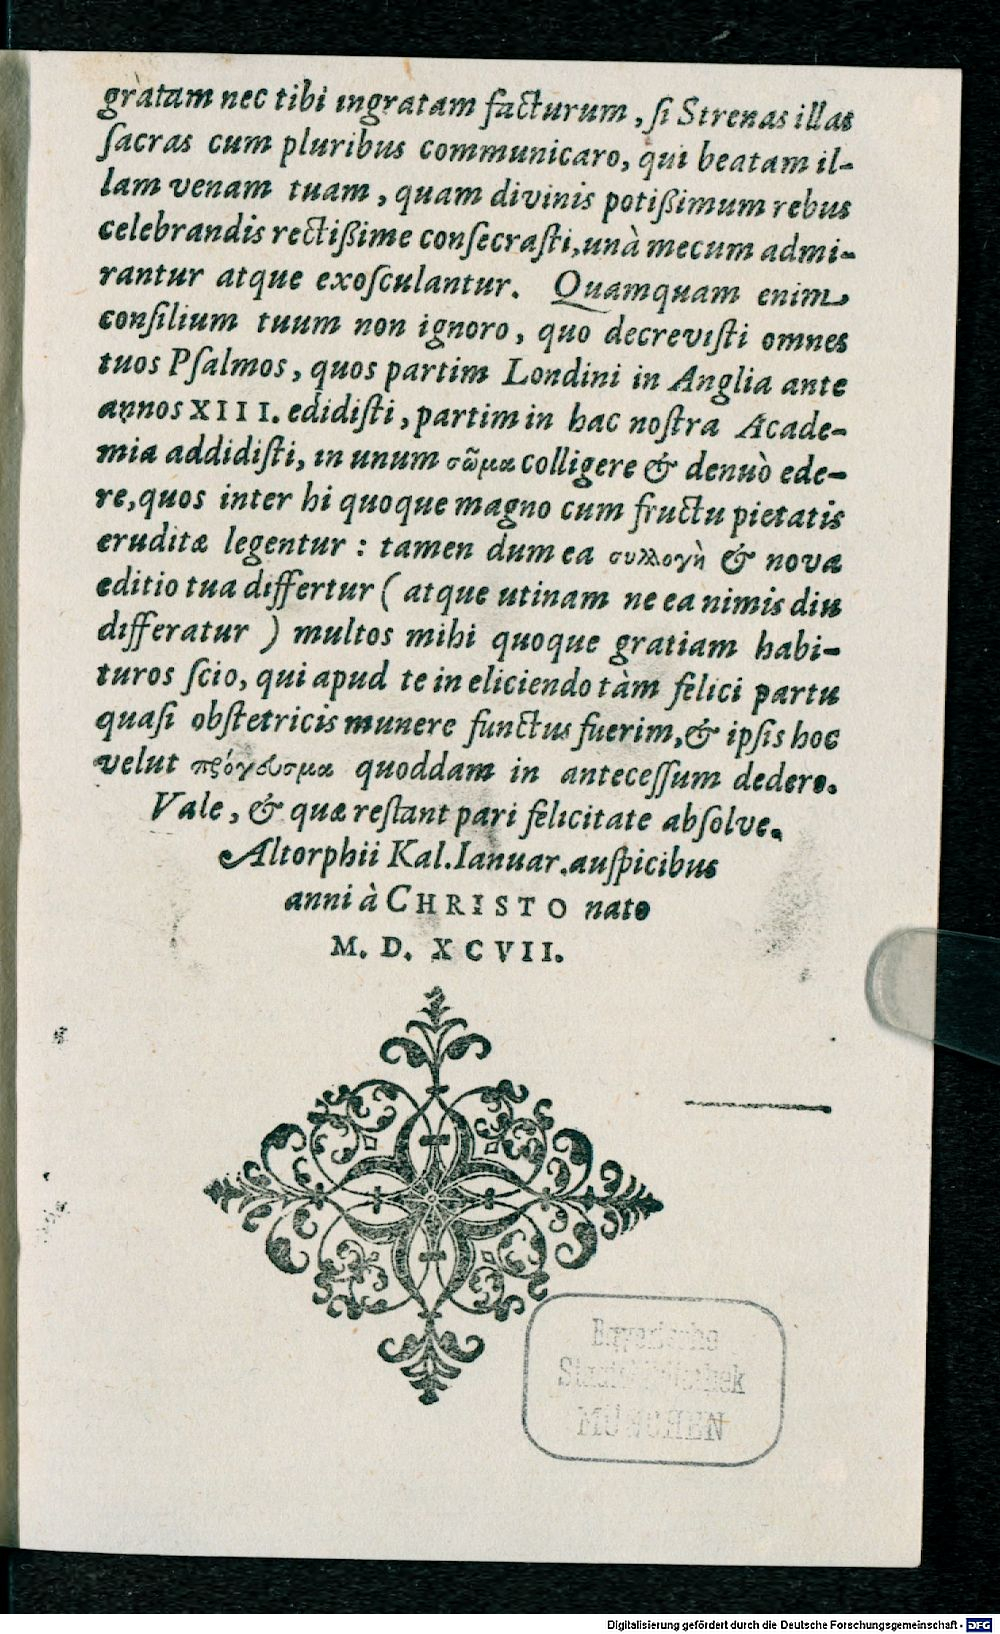 gratam nec tibi ingratam facturum, ſi Strenas illas
ſacras cum pluribus communicaro, qui beatam il-
lam venam tuam, quam divinis potißimum rebus
celebrandis rectißime conſecraſti, unà mecum admi-
rantur atque exoſculantur. Quamquam enim
conſilium tuum non ignoro, quo decreviſti omnes
tuos Pſalmos, quos partim Londini in Anglia ante
annos XIII. edidiſti, partim in hac noſtra Acade-
mia addidiſti, in unum σῶμα colligere & denuò ede-
re, quos inter hi quoque magno cum fructu pietatis
eruditæ legentur : tamen dum ea συλλογὴ & nova
editio tua differtur ( atque utinam ne ea nimis diu
differatur ) multos mihi quoque gratiam habi-
turos ſcio, qui apud te in eliciendo tàm felici partu
quaſi obſtetricis munere functus fuerim, & ipſis hoc
velut πρόγευσμα quoddam in anteceſſum dedero.
Vale, & quæ reſtant pari felicitate abſolve.
Altorphii Kal. Ianuar. auſpicibus
anni à CHRISTO nato
M. D. XCVII.
Bayerische
Staatsbibliothek
MÜNCHEN
Digitalisierung gefördert durch die Deutsche Forschungsgemeinschaft - DFG